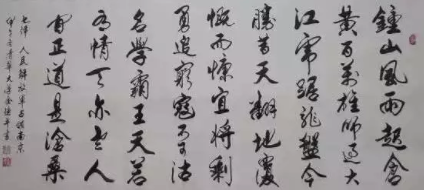 鐘山風雨起倉
黄百萬雄師過大
江虎踞龍盤今
勝昔天翻地覆
慨而慷宜將剩
勇追窮寇不可沽
名學霸王天若
有情天亦老人
間正道是滄桑
七律 人民解放軍占領南京
清華大學